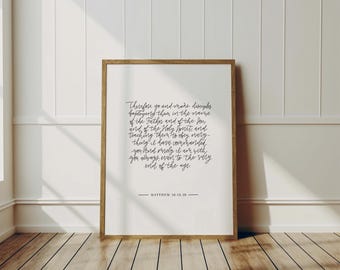 Therefore go and make disciples
baptizing them in the name
of the Father and of the Son
and of the Holy Spirit, and
teaching them to obey every-
thing I have commanded
you. And surely I am with
you always, even to the very
end of the age.
MATTHEW 28:19-20